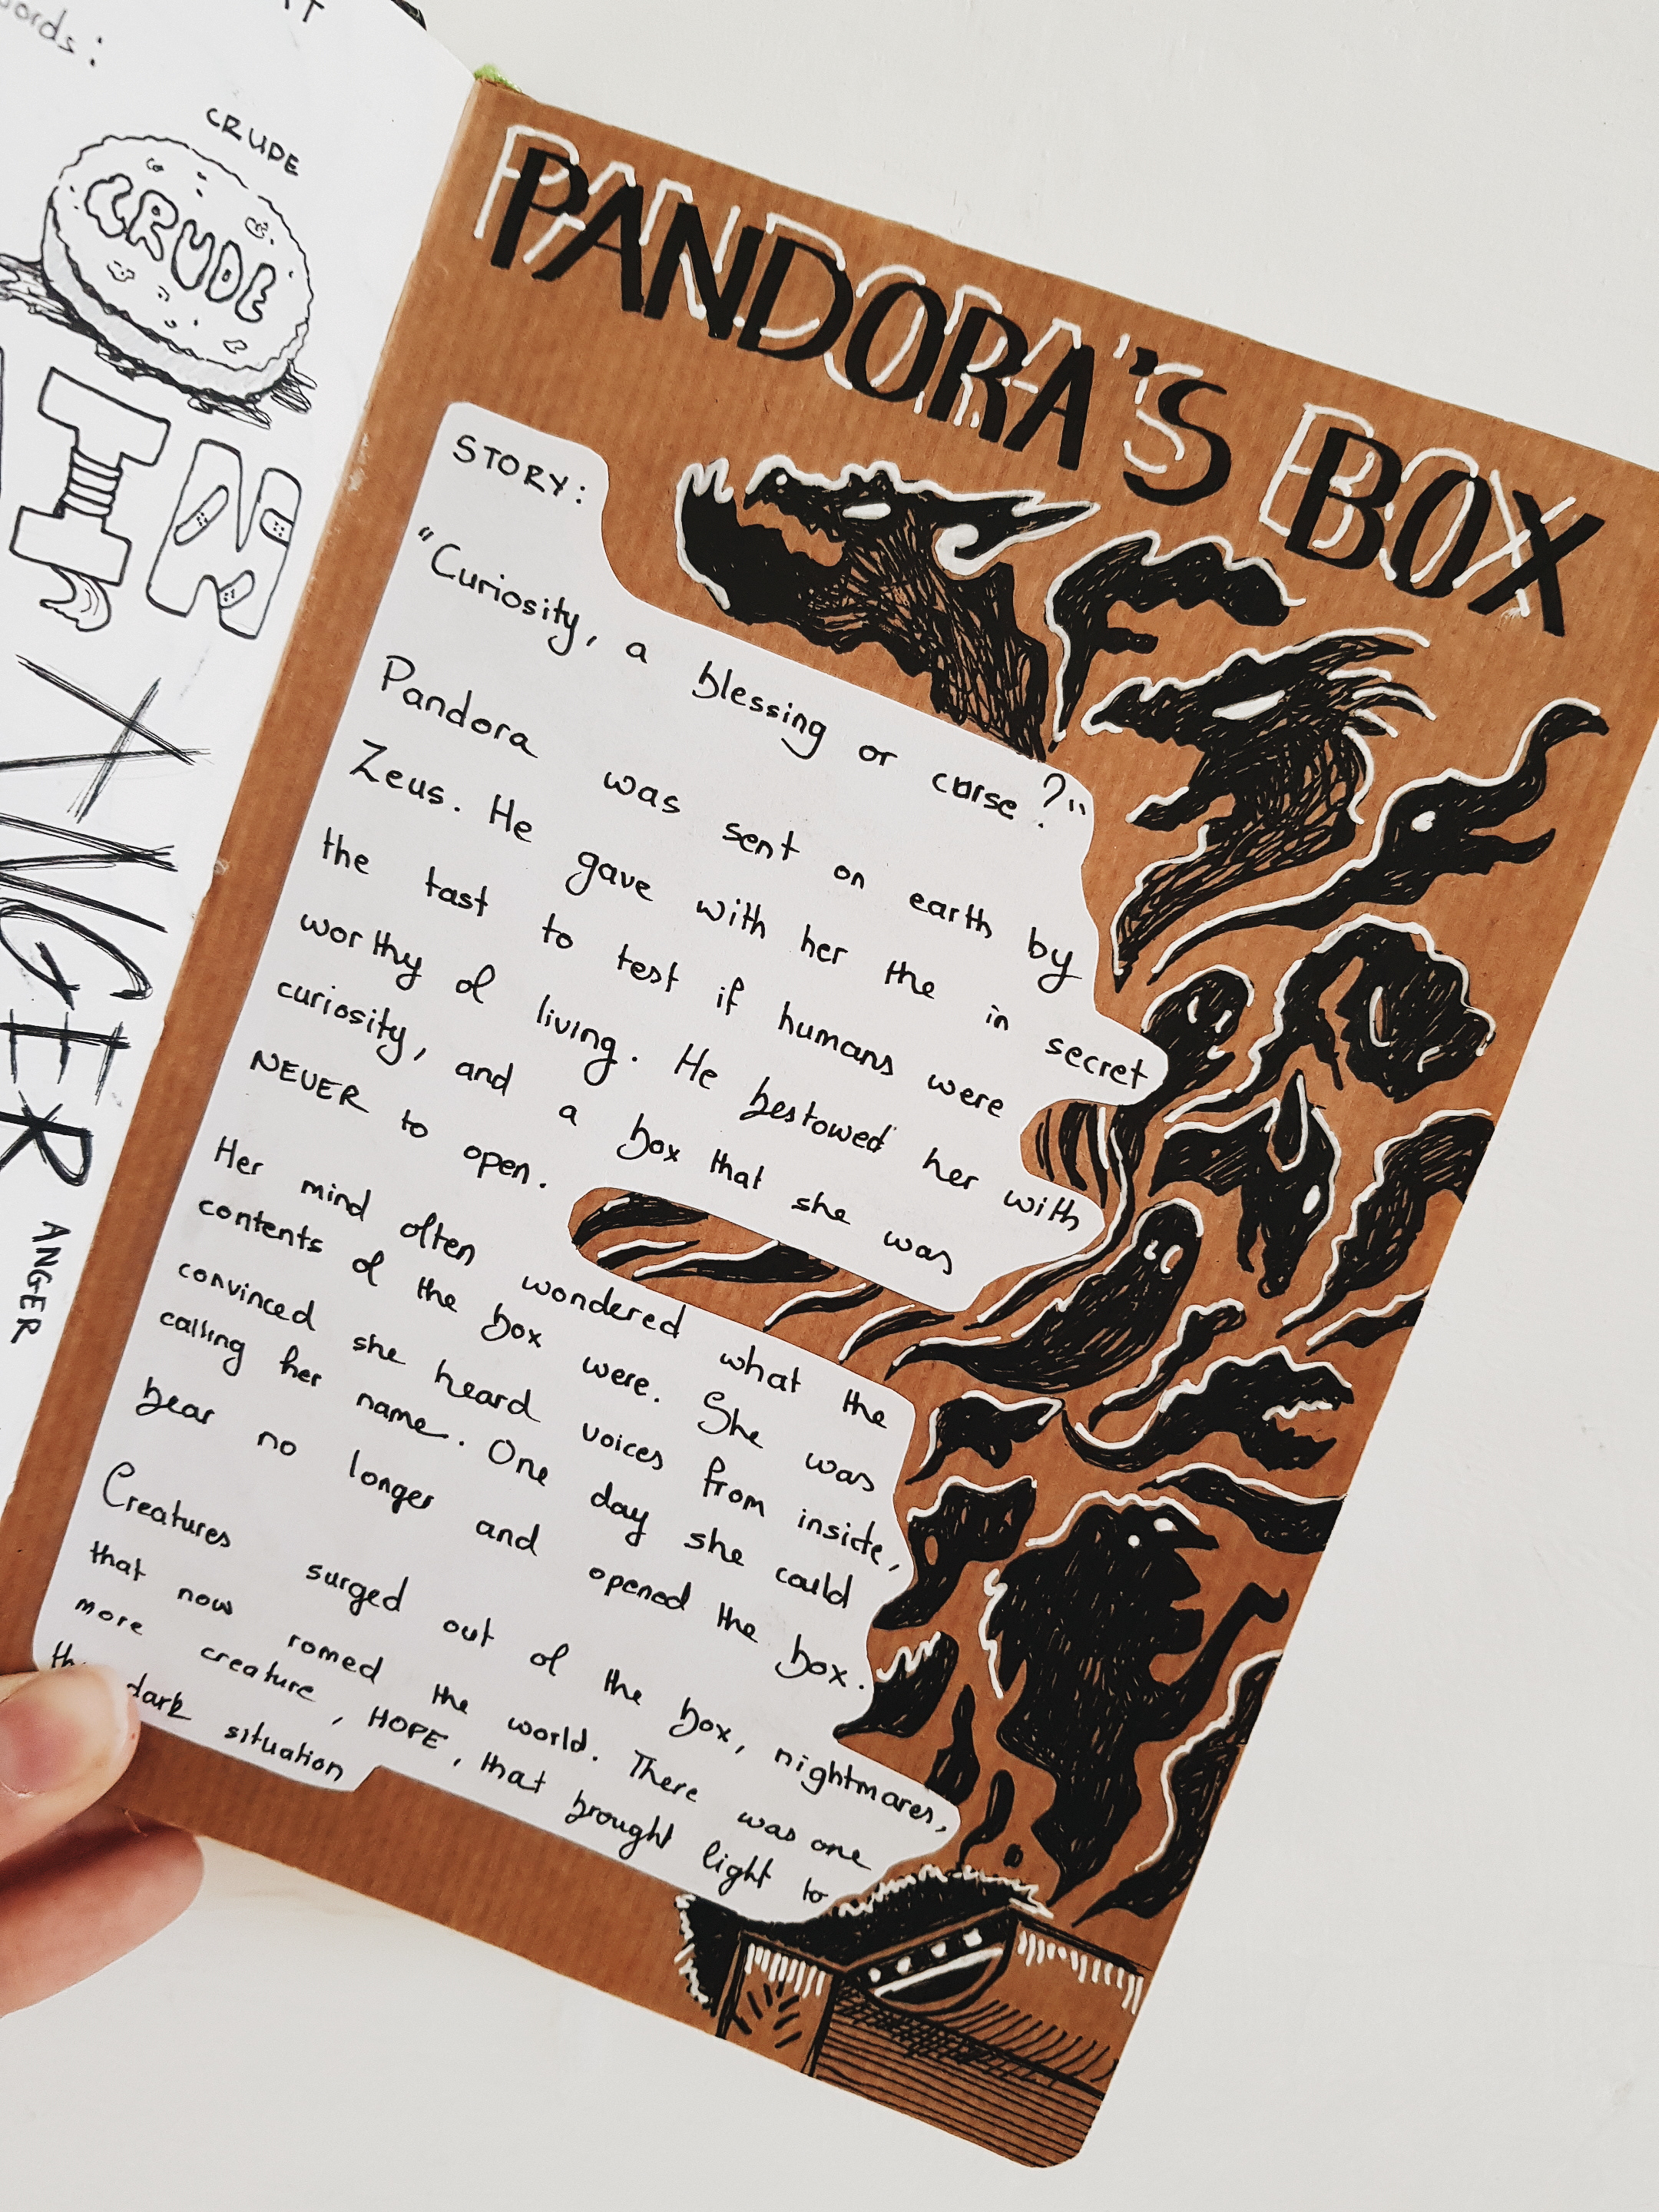 ords:
CRUDE
CRUDE
ANGER
ANGER
PANDORA'S BOX
STORY:
"Curiosity, a blessing or curse?"
Pandora was sent on earth by
Zeus. He gave with her the in secret
the tast to test if humans were
worthy of living. He bestowed her with
curiosity, and a box that she was
NEVER to open.
Her mind often wondered what the
contents of the box were. She was
convinced she heard voices from inside,
calling her name. One day she could
bear no longer and opened the box.
Creatures surged out of the box, nightmares,
that now romed the world. There was one
more creature, HOPE, that brought light to
dark situation